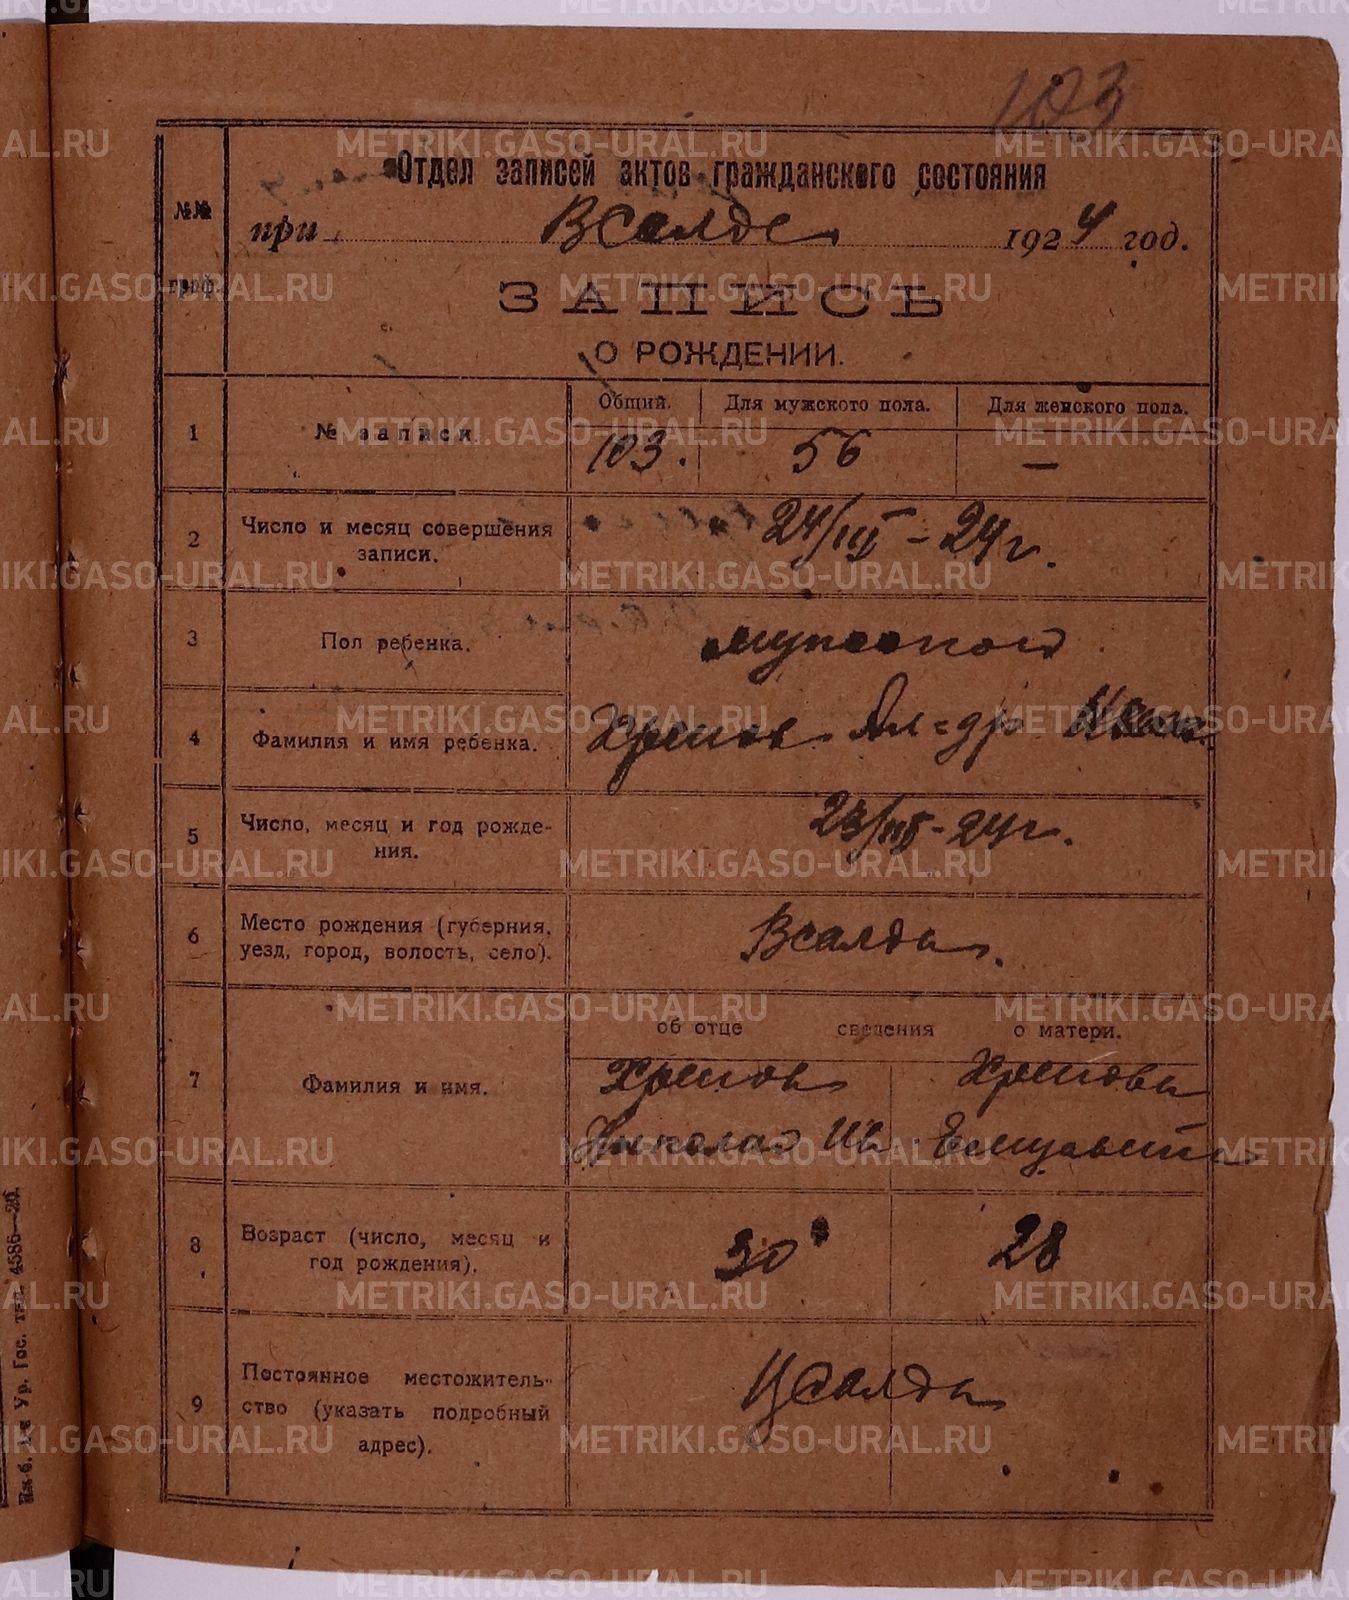 103
Отдел записей актов гражданского состояния
при В Салде 1924 год.
№№ граф.
ЗАПИСЬ
О РОЖДЕНИИ.
Общий. Для мужского пола. Для женского пола.
1 № записи 103. 56 —
2 Число и месяц совершения записи. 24/III – 24 г.
3 Пол ребенка. мужской
4 Фамилия и имя ребенка. Хренов Ал-др
5 Число, месяц и год рождения. 23/III – 24 г.
6 Место рождения (губерния, уезд, город, волость, село). В Салда.
об отце сведения о матери.
7 Фамилия и имя. Хренов Хренова
Николай Ив Елизавета
8 Возраст (число, месяц и год рождения). 30 28
9 Постоянное местожительство (указать подробный адрес). Салда
METRIKI.GASO-URAL.RU